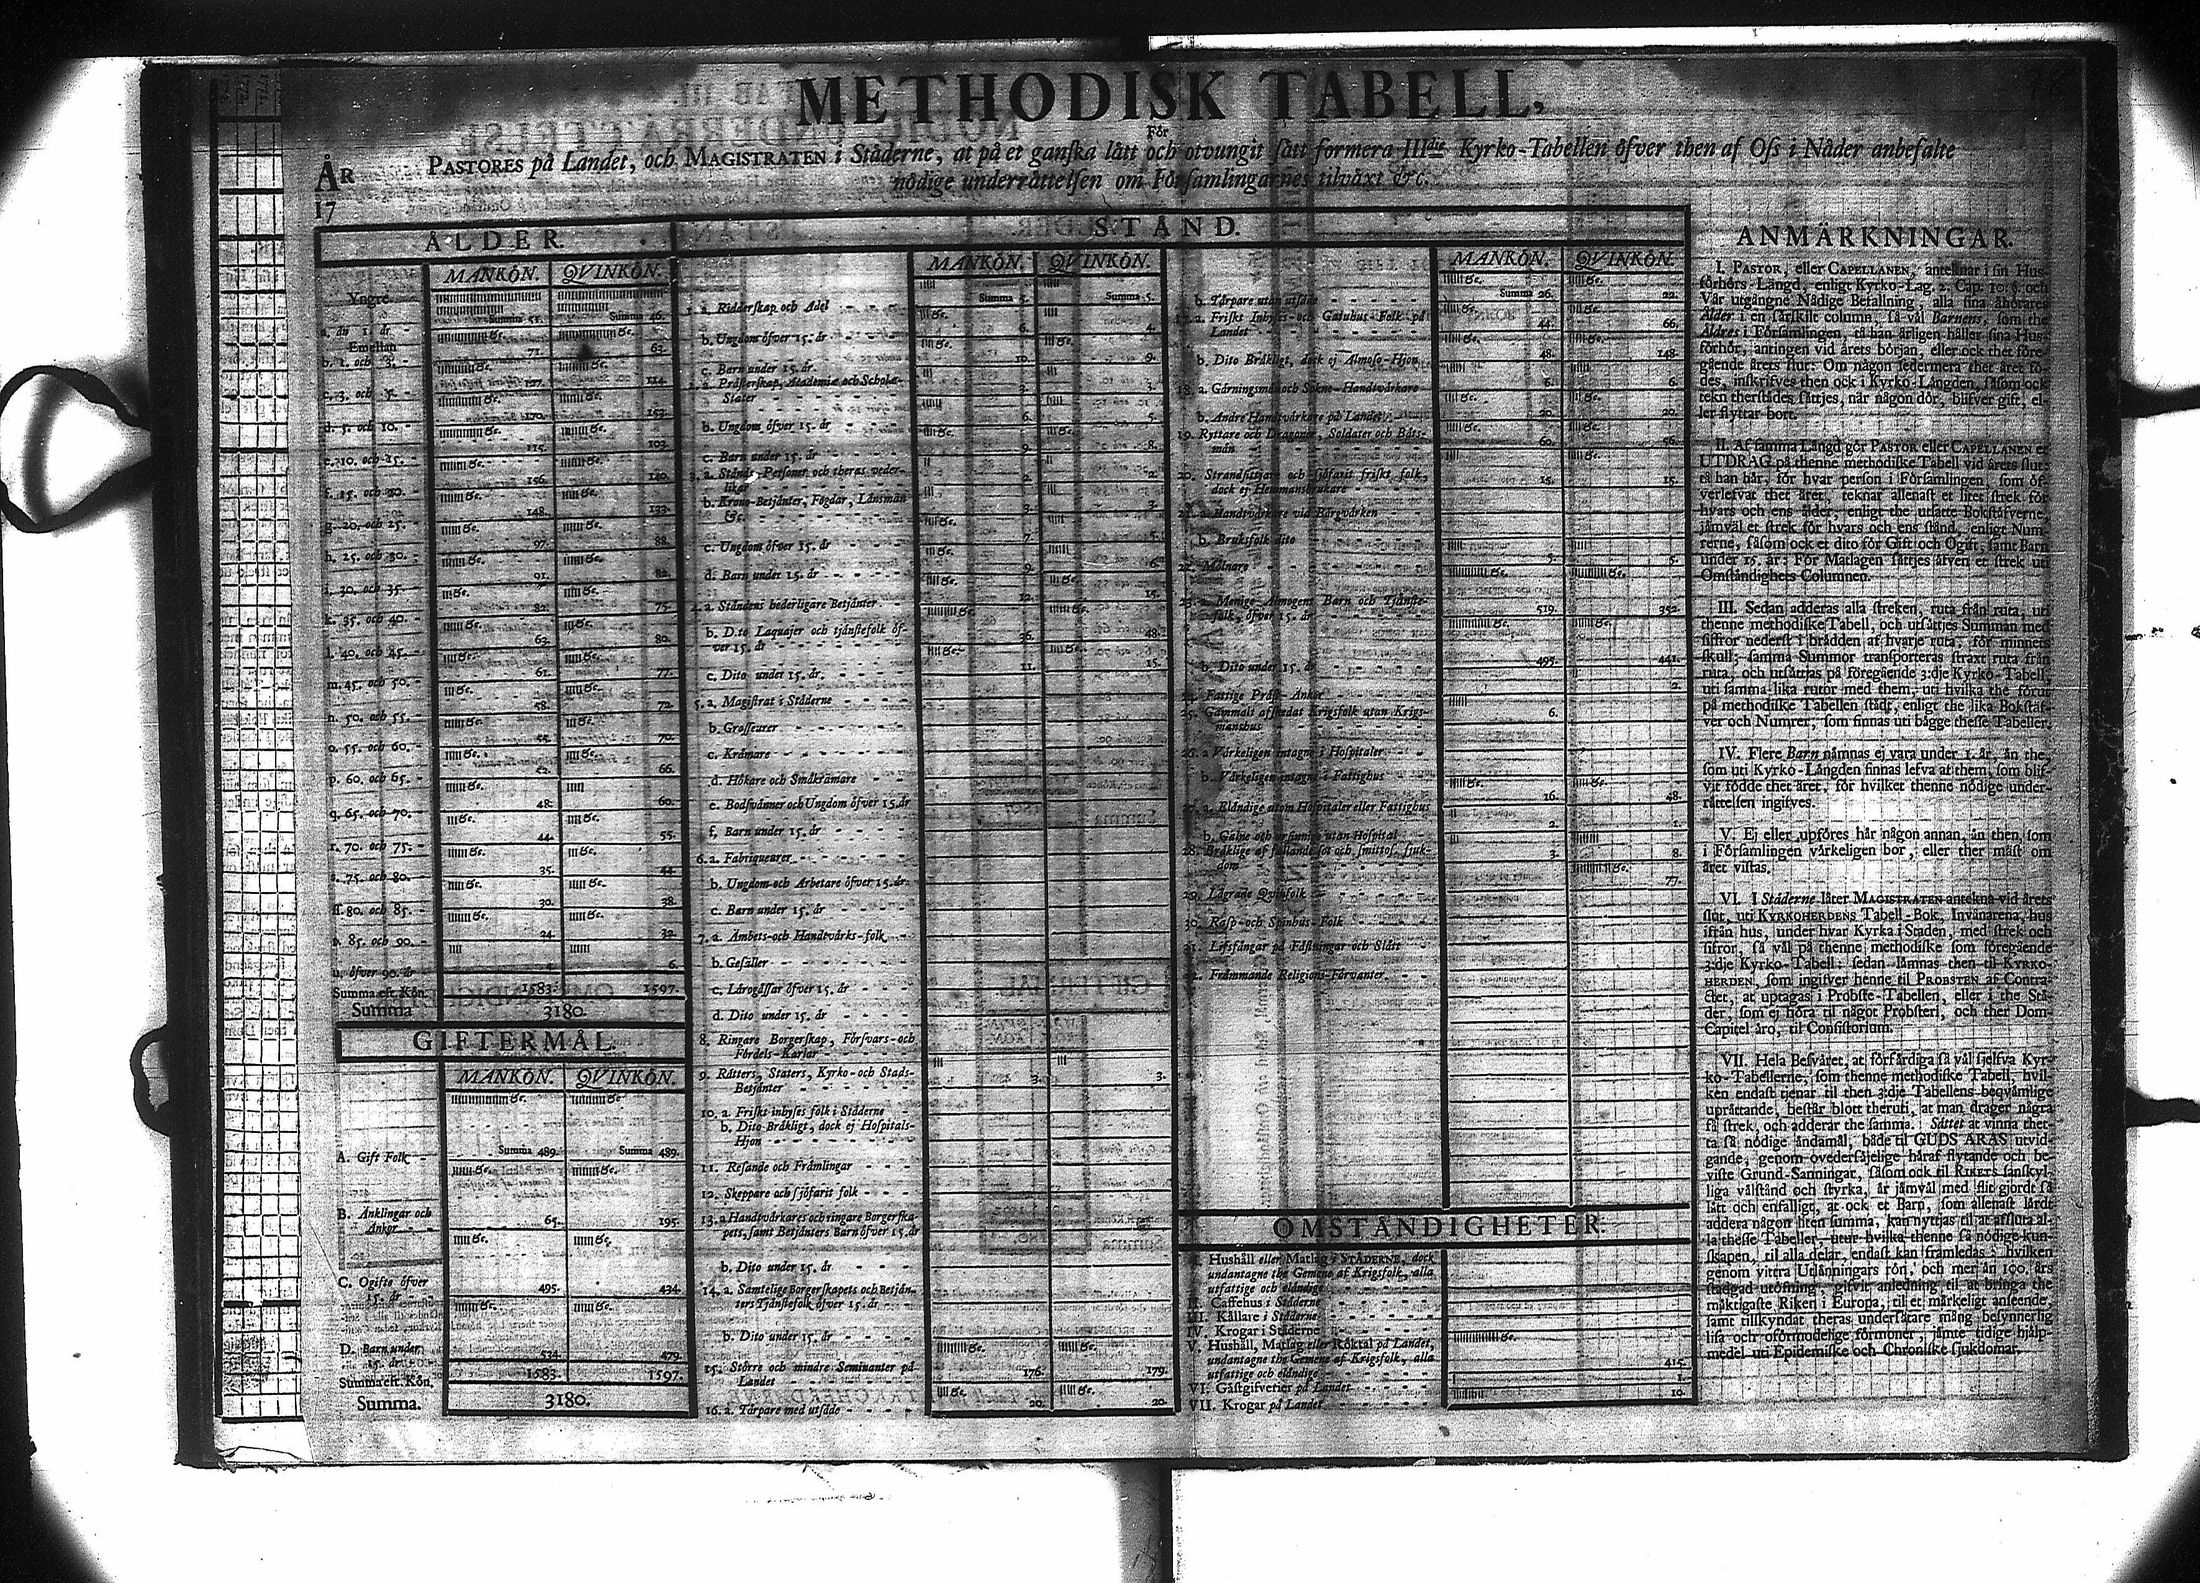 METHODISK TABELL,
För
PASTORES på Landet, och MAGISTRATEN i Städerne, at på et ganska lätt och otvungit sätt formera III die Kyrko-Tabellen öfver then af Oss i Nåder anbefalte
nödige underrättelsen om Församlingarnes tilväxt &c.
ÅR
17
ÅLDER.
MANKÖN. QVINKÖN.
Yngre
Summa 51. Summa 46.
a. än 1. år -
Emellan
71. 63.
b. 1. och 3. -
127. 114.
c. 3. och 5. -
170. 153.
d. 5. och 10. -
115. 103.
e. 10. och 15. -
156. 140.
f. 15. och 20. -
148. 133.
g. 20. och 25. -
97. 88.
h. 25. och 30. -
91. 82.
i. 30. och 35. -
82. 75.
k. 35. och 40. -
63. 80.
l. 40. och 45. -
61. 77.
m. 45. och 50. -
58. 72.
n. 50. och 55. -
70.
o. 55. och 60. -
66.
p. 60. och 65. -
48. 60.
q. 65. och 70. -
44. 55.
r. 70. och 75. -
35. 44.
s. 75. och 80. -
30. 38.
ff. 80. och 85. -
24. 32.
t. 85. och 90. -
4. 6.
u. öfver 90. år
Summa eft. Kön. 1583. 1597.
Summa 3180.
GIFTERMÅL.
MANKÖN. QVINKÖN.
Summa 489. Summa 489.
A. Gift Folk -
65. 195.
B. Änklingar och
Änkor - -
C. Ogifte öfver
15. år - -
495. 434.
D. Barn under
15. år
534. 479.
Summa eft. Kön. 1583. 1597.
Summa. 3180.
STÅND.
MANKÖN. QVINKÖN.
Summa 5. Summa 5.
1. a. Ridderskap och Adel - - - -
6. 4.
b. Ungdom öfver 15. år - - - -
10. 9.
c. Barn under 15. år.
2. a. Prästerskap, Academiæ och Scholæ-
Stater - - - - - -
3. 3.
6. 5.
b. Ungdom öfver 15. år - - - -
9. 8.
c. Barn under 15. år - - - -
3. a. Stånds-Personer och theras veder-
likar
2. 2.
b. Krono-Betjänter, Fogdar, Länsmän
&c. - - - - - -
3. 3.
7. 5.
c. Ungdom öfver 15. år - - - -
9. 6.
d. Barn under 15. år - - - -
12. 15.
4. a. Ståndens hederligare Betjänter -
b. D:to Laquajer och tjänstefolk öf-
ver 15. år - - - - - -
36. 48.
11. 15.
c. Dito under 15. år. - - - -
5. a. Magistrat i Städerne - - - -
b. Grosseurer - - - - - -
c. Krämare - - - - - -
d. Hökare och Småkrämare - - -
e. Bodsvänner och Ungdom öfver 15. år
f. Barn under 15. år - - - -
6. a. Fabriqueurer - - - - - -
b. Ungdom och Arbetare öfver 15. år.
c. Barn under 15. år - - - -
7. a. Ämbets- och Handtvärks-folk -
b. Gesäller - - - - - -
c. Lärogåssar öfver 15. år - - -
d. Dito under 15. år - - - -
8. Ringare Borgerskap, Försvars- och
Fördels-Karlar - - - -
9. Rätters, Staters, Kyrko- och Stads-
Betjänter - - - - - -
3. 3.
10. a. Friskt inhyses folk i Städerne -
b. Dito Bräkligt, dock ej Hospitals-
Hjon - - - - - -
11. Resande och Främlingar - - -
12. Skeppare och sjöfarit folk - - -
13. a Handtvärkares och ringare Borgerska-
pets, samt Betjänters Barn öfver 15. år
b. Dito under 15. år - - - -
14. a. Samtelige Borgerskapets och Betjän-
ters Tjänstefolk öfver 15. år - -
b. Dito under 15. år - - - -
15. Större och mindre Seminanter på
Landet - - - - - -
176. 179.
16. a. Tärpare med utsäde - - - -
20. 20.
MANKÖN. QVINKÖN.
Summa 26. 22.
b. Tärpare utan utsäde - - - -
17. a. Friskt Inhyses- och Gatuhus-Folk på
Landet - - - - - -
44. 66.
b. Dito Bräkligt, dock ej Almose-Hjon
48. 148.
18. a. Gärningsmän och Sokne-Handtvärkare
6. 6.
b. Andre Handtvärkare på Landet -
20. 20.
19. Ryttare och Dragoner, Soldater och Båts-
män - - - - - -
60. 56.
20. Strandsittjare och sjöfarit friskt folk,
dock ej Hemmansbrukare
15. 15.
21. a. Handtvärkare vid Bärgvärken - -
b. Bruksfolk dito - - - -
22. Mölnare - - - - - -
5. 5.
23. a. Menige Almogens Barn och Tjänste-
folk, öfver 15. år - - - -
519. 352.
b. Dito under 15. år
495. 441.
24. Fattige Präst-Änkor - - -
2.
25. Gammalt afskedat Krigsfolk utan Krigs-
manshus - - - - - -
6.
26. a Värkeligen intagne i Hospitaler -
b. Värkeligen intagne i Fattighus - -
16. 48.
27. a. Eländige utom Hospitaler eller Fattighus
2. 1.
b. Galne och ursinnige utan Hospital - -
28. Bräklige af fallande sot och smittos. sjuk-
dom - - - - - -
3. 8.
77.
29. Lägrade Qvinfolk - - - -
30. Rasp- och Spinhus-Folk - - - -
31. Lifsfångar på Fästningar och Slått - -
32. Främmande Religions-Förvanter - - -
OMSTÄNDIGHETER.
I. Hushåll eller Matlag i STÄDERNE, dock
undantagne the Gemene af Krigsfolk, alla
utfattige och eländige - - - -
II. Caffehus i Städerne
III. Källare i Städerne
IV. Krogar i Städerne
V. Hushåll, Matlag eller Röktal på Landet,
undantagne the Gemene af Krigsfolk, alla
utfattige och eländige - - - -
415.
VI. Gästgifverier på Landet - - - -
1.
VII. Krogar på Landet - - - -
10.
ANMÄRKNINGAR.
I. PASTOR, eller CAPELLANEN, antecknar i sin Hus-
förhörs-Längd, enligt Kyrko-Lag. 2. Cap. 10. §. och
Vår utgångne Nådige Befallning, alla sina åhörares
Ålder i en särskilt column, så väl Barnens, som the
Äldres i Församlingen, tå han årligen håller sina Hus-
förhör, antingen vid årets början, eller ock thet före-
gående årets slut: Om någon sedermera ther året fö-
des, inskrifves then ock i Kyrko-Längden, såsom ock
tekn therstädes sättjes, när någon dör, blifver gift, el-
ler flyttar bort.
II. Af samma Längd gör PASTOR eller CAPELLANEN et
UTDRAG på thenne methodiske Tabell vid årets slut:
tå han här, för hvar person i Församlingen, som öf-
verlefvat thet året, teknar allenast et litet strek för
hvars och ens ålder, enligt the utsatte Bokstäfverne,
jämväl et strek för hvars och ens stånd, enligt Num-
rerne, såsom ock et dito för Gift och Ogift, samt Barn
under 15. år: För Matlagen sättjes äfven et strek uti
Omständighets Columnen.
III. Sedan adderas alla streken, ruta från ruta, uti
thenne methodiske Tabell, och utsättjes Summan med
siffror nederst i brädden af hvarje ruta, för minnets
skull; samma Summor transporteras straxt ruta från
ruta, och utsättas på föregående 3:dje Kyrko-Tabell,
uti samma lika rutor med them, uti hvilka the förut
på methodiske Tabellen städt, enligt the lika Bokstäf-
ver och Numrer, som finnas uti bägge thesse Tabeller.
IV. Flere Barn nämnas ej vara under 1. år, än the,
som uti Kyrko-Längden finnas lefva af them, som blif-
vit födde thet året, för hvilket thenne nödige under-
rättelsen ingifves.
V. Ej eller upföres här någon annan, än then, som
i Församlingen värkeligen bor, eller ther mäst om
året vistas.
VI. I Städerne låter MAGISTRATEN antekna vid årets
slut, uti KYRKOHERDENS Tabell-Bok, Invånarena, hus
ifrån hus, under hvar Kyrka i Staden, med strek och
sifror, så väl på thenne methodiske som föregående
3:dje Kyrko-Tabell: sedan lämnas then til KYRKO-
HERDEN, som ingifver henne til PROBSTEN af Contra-
ctet, at uptagas i Probste-Tabellen, eller i the Stä-
der, som ej höra til något Probsteri, och ther Dom-
Capitel äro, til Consistorium.
VII. Hela Besväret, at förfärdiga så väl sjelfva Kyr-
ko-Tabellerne, som thenne methodiske Tabell, hvil-
ken endast tjenar til then 3:dje Tabellens beqvämlige
uprättande, består blott theruti, at man drager några
få strek, och adderar the samma. Sättet at vinna thet-
ta så nödige ändamål, både til GUDS ÄRAS utvid-
gande, genom ovedersäjelige häraf flytande och be-
viste Grund-Sanningar, såsom ock til RIKETS sanskyl-
liga välstånd och styrka, är jämväl med flit gjordt så
lätt och enfalligt, at ock et Barn, som allenast lärdt
addera någon liten summa, kan nyttjas til at afsluta al-
la thesse Tabeller, utur hvilka thenne så nödige kun-
skapen, til alla delar, endast kan framledas: hvilken
genom vittra Utlänningars rön, och mer än 100. års
stadgad utöfning, gifvit anledning til at bringa the
mäktigaste Riken i Europa, til et märkeligt anseende,
samt tillskyndat theras undersåtare mång besynnerlig
lisa och oförmodelige förmoner, jämte tidige hjälp-
medel uti Epidemiske och Chroniske sjukdomar.